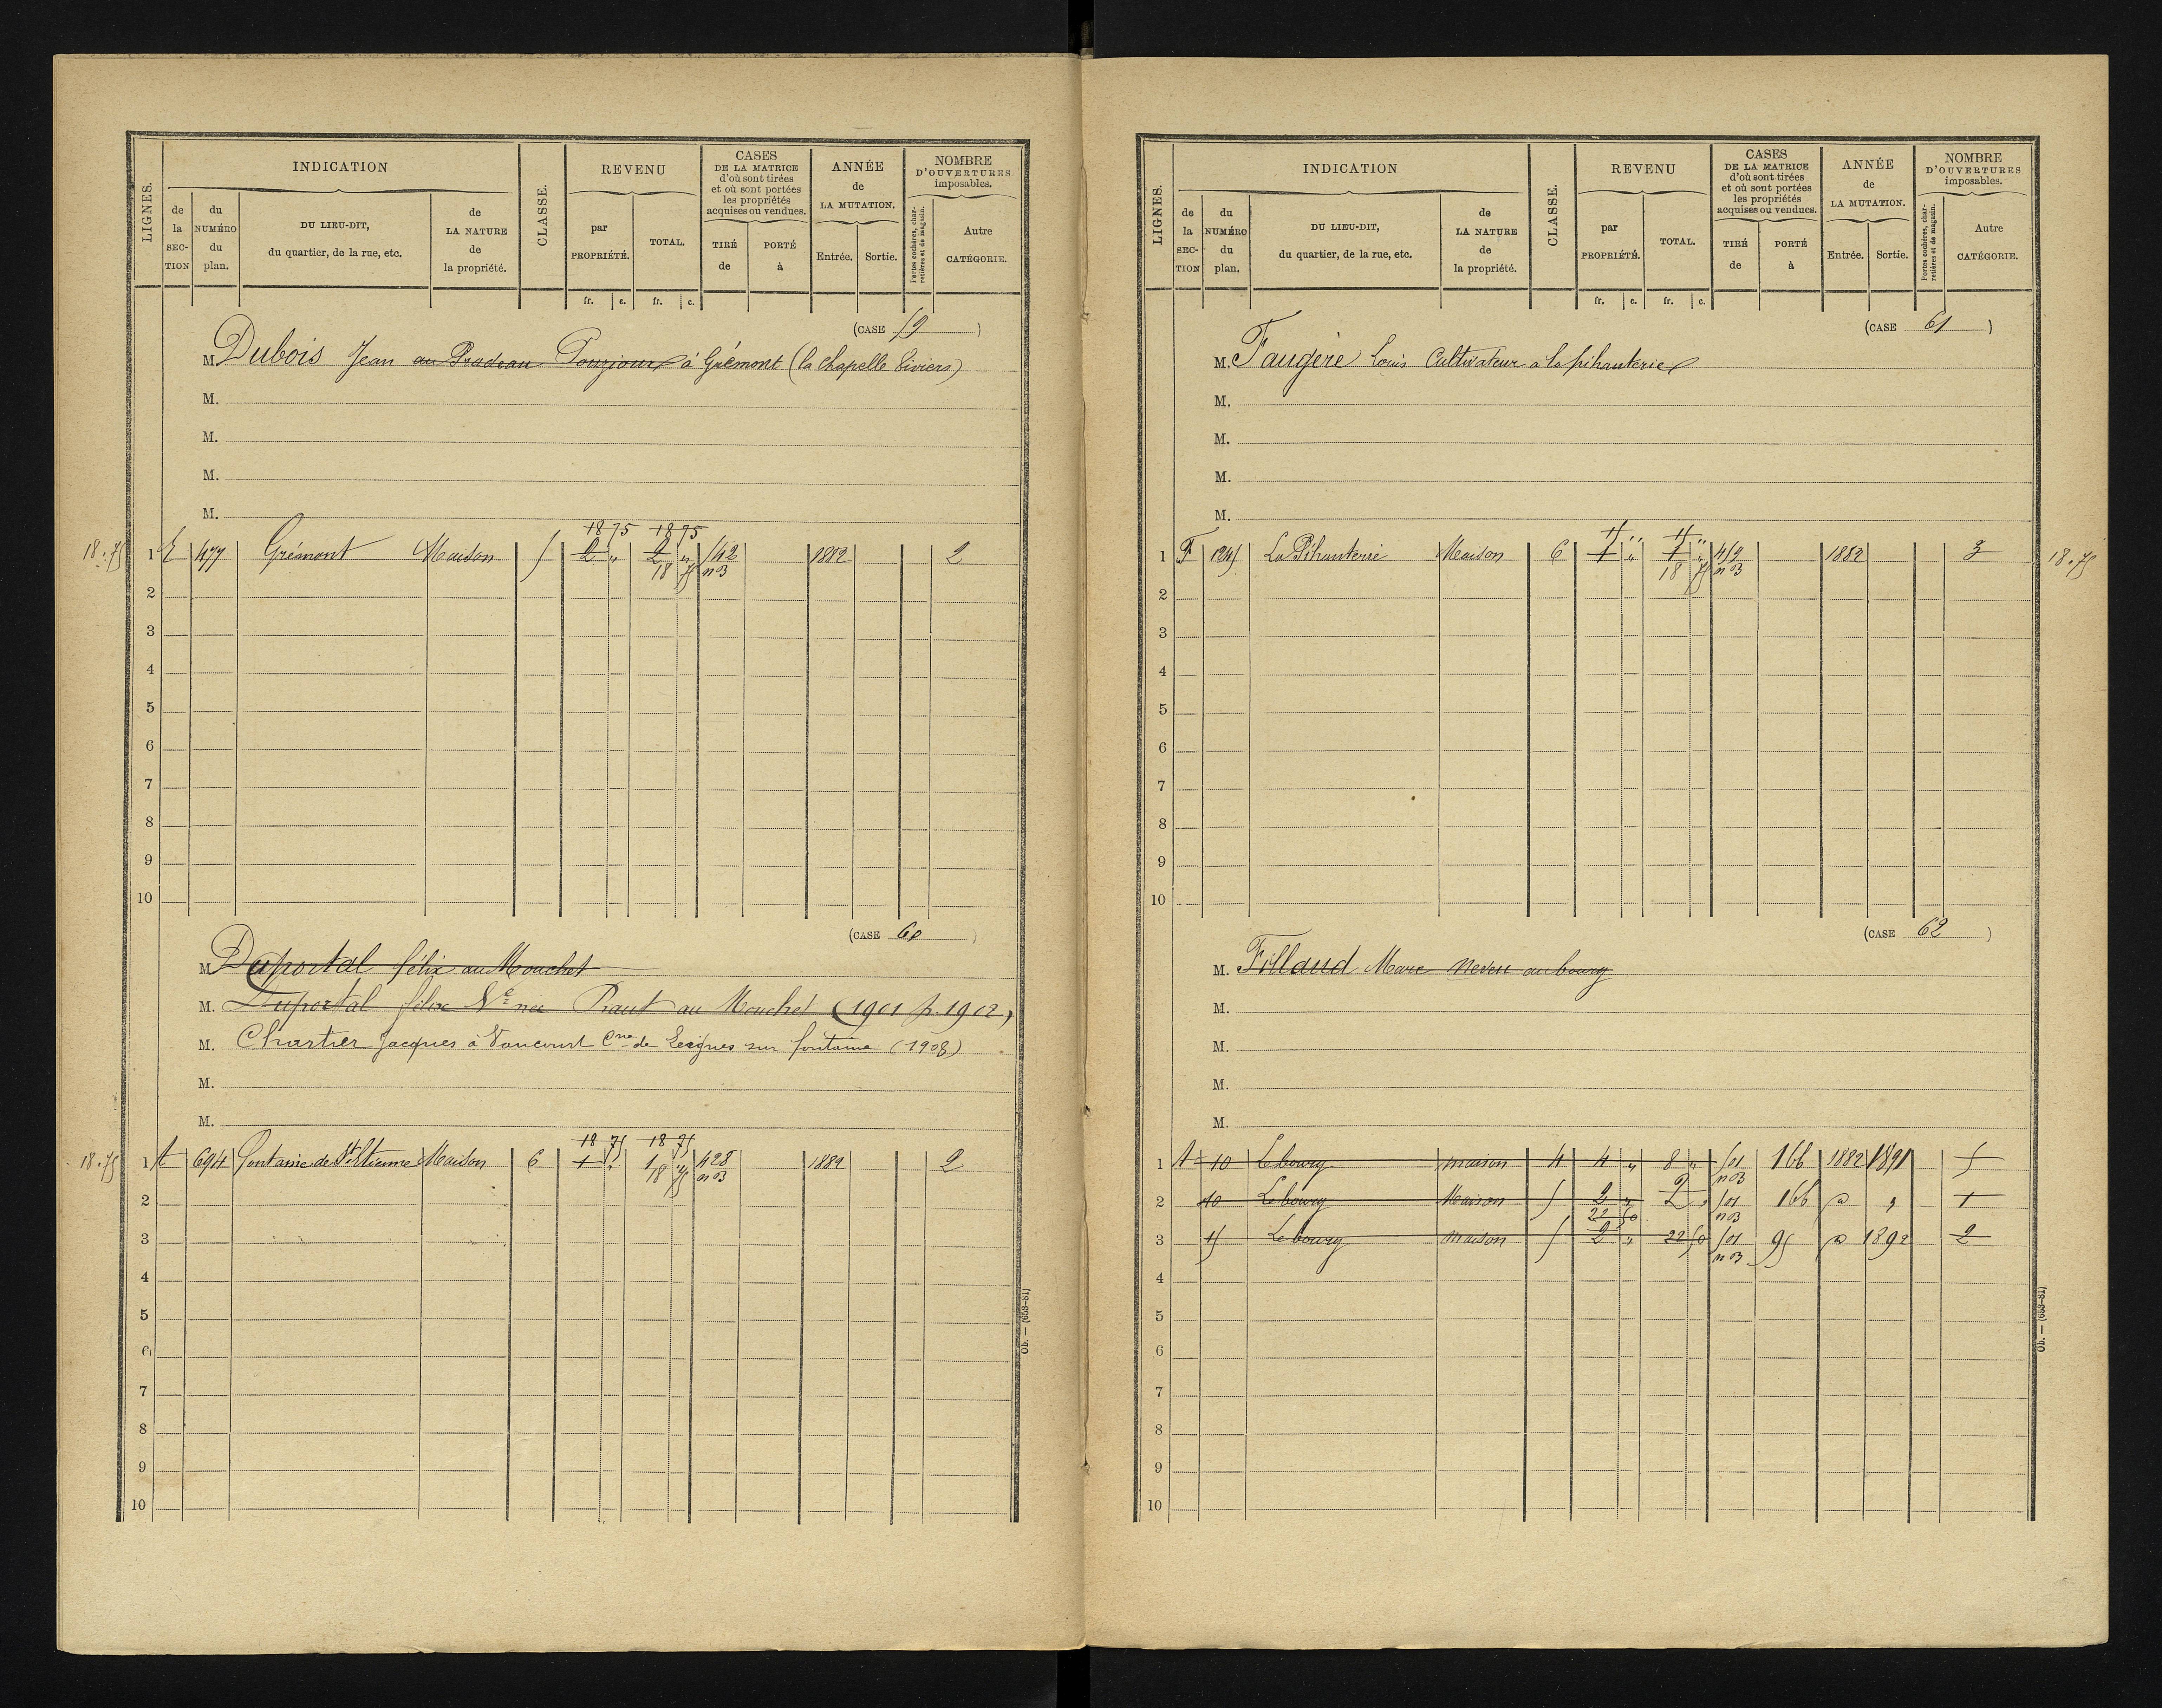 LIGNES.
INDICATION
de la SEC-TION
du NUMÉRO du plan.
DU LIEU-DIT, du quartier, de la rue, etc.
de LA NATURE de la propriété.
CLASSE.
REVENU
par PROPRIÉTÉ.
TOTAL.
fr. c. fr. c.
CASES DE LA MATRICE d'où sont tirées et où sont portées les propriétés acquises ou vendues.
TIRÉ de
PORTÉ à
ANNÉE de LA MUTATION.
Entrée. Sortie.
NOMBRE D'OUVERTURES imposables.
Portes cochères, charretières et de magasin.
Autre CATÉGORIE.
(CASE 59 )
M. Dubois Jean au Pradeau Pouzioux à Grémont (la Chapelle Viviers)
M.
M.
M.
M.
18 75 18 75
18.75 1 E 477 Grémont Maison 5 2 " 2 " 542 1882 2
18 75 n B
2
3
4
5
6
7
8
9
10
(CASE 60 )
M. Duportal félix au Mouchet
M. Duportal félix Ve née Praut au Mouchet (1901 p. 1902)
M. Chartier Jacques à Vaucourt Cne de Leignes sur fontaine (1908)
M.
M.
18 75 18 75
18.75 1 A 694 fontaine de St Etienne Maison 6 1 " 1 " 428 1882 2
18 75 n B
2
3
4
5
6
7
8
9
10
Ob. — (653-81)
LIGNES.
INDICATION
de la SEC-TION
du NUMÉRO du plan.
DU LIEU-DIT, du quartier, de la rue, etc.
de LA NATURE de la propriété.
CLASSE.
REVENU
par PROPRIÉTÉ.
TOTAL.
fr. c. fr. c.
CASES DE LA MATRICE d'où sont tirées et où sont portées les propriétés acquises ou vendues.
TIRÉ de
PORTÉ à
ANNÉE de LA MUTATION.
Entrée. Sortie.
NOMBRE D'OUVERTURES imposables.
Portes cochères, charretières et de magasin.
Autre CATÉGORIE.
(CASE 61 )
M. Faugère Louis Cultivateur à la pihanterie
M.
M.
M.
M.
15 " 15 "
1 F 1245 La Pihanterie Maison 6 1 " 1 " 459 1882 3 18.75
18 75 n B
2
3
4
5
6
7
8
9
10
(CASE 62 )
M. Fillaud Marc neveu au bourg
M.
M.
M.
M.
1 A 10 Le bourg maison 4 4 " 8 " 501 166 1882 1891 5
n B
2 10 Le bourg Maison 5 2 " 2 " 501 166 d° " 1
22 50 n B
3 15 Le bourg maison 5 2 " 22 50 501 95 d° 1892 2
n B
4
5
6
7
8
9
10
Ob. — (653-81)